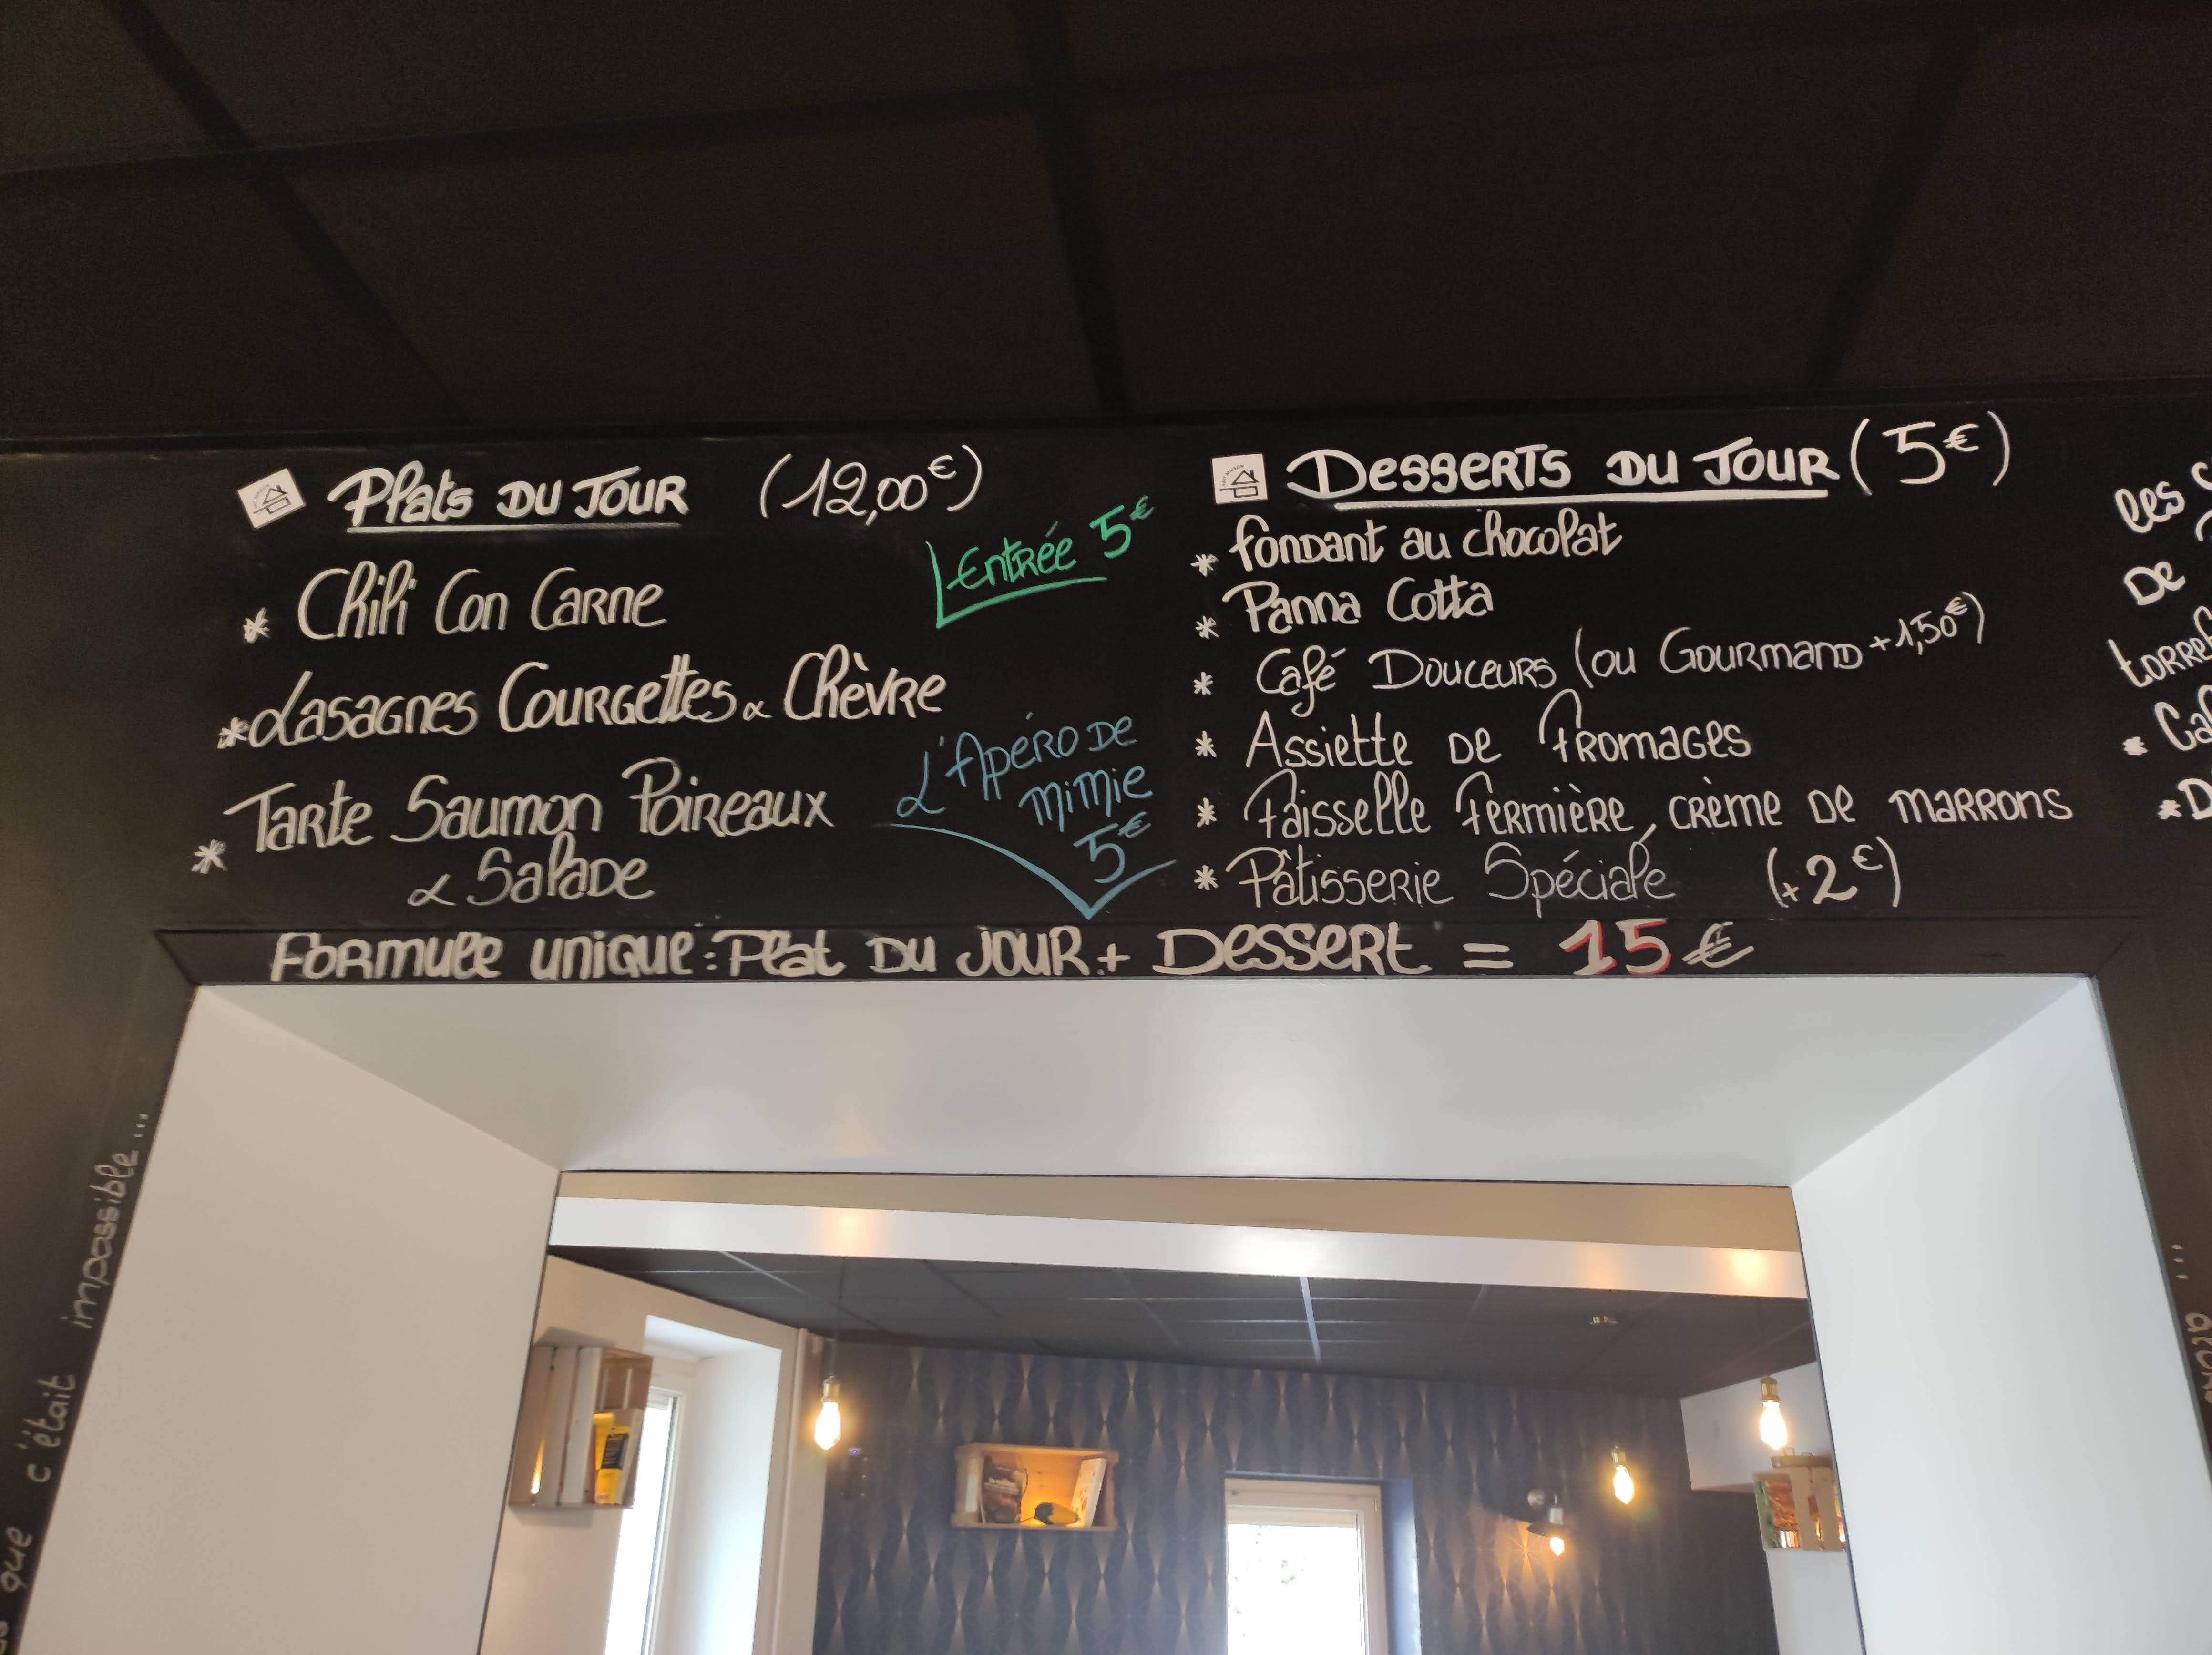 Plats du Jour (12,00€)
* Chili Con Carne
* Lasagnes Courgettes & Chèvre
* Tarte Saumon Poireaux
& Salade
Entrée 5€
L'Apéro de
mimie
5€
Desserts du Jour (5€)
* fondant au chocolat
* Panna Cotta
* Café Douceurs (ou Gourmand +1,50€)
* Assiette de Fromages
* Faisselle Fermière, crème de marrons
* Pâtisserie Spéciale (+2€)
Formule unique: Plat du jour + Dessert = 15€
les
De
que c'était impossible...